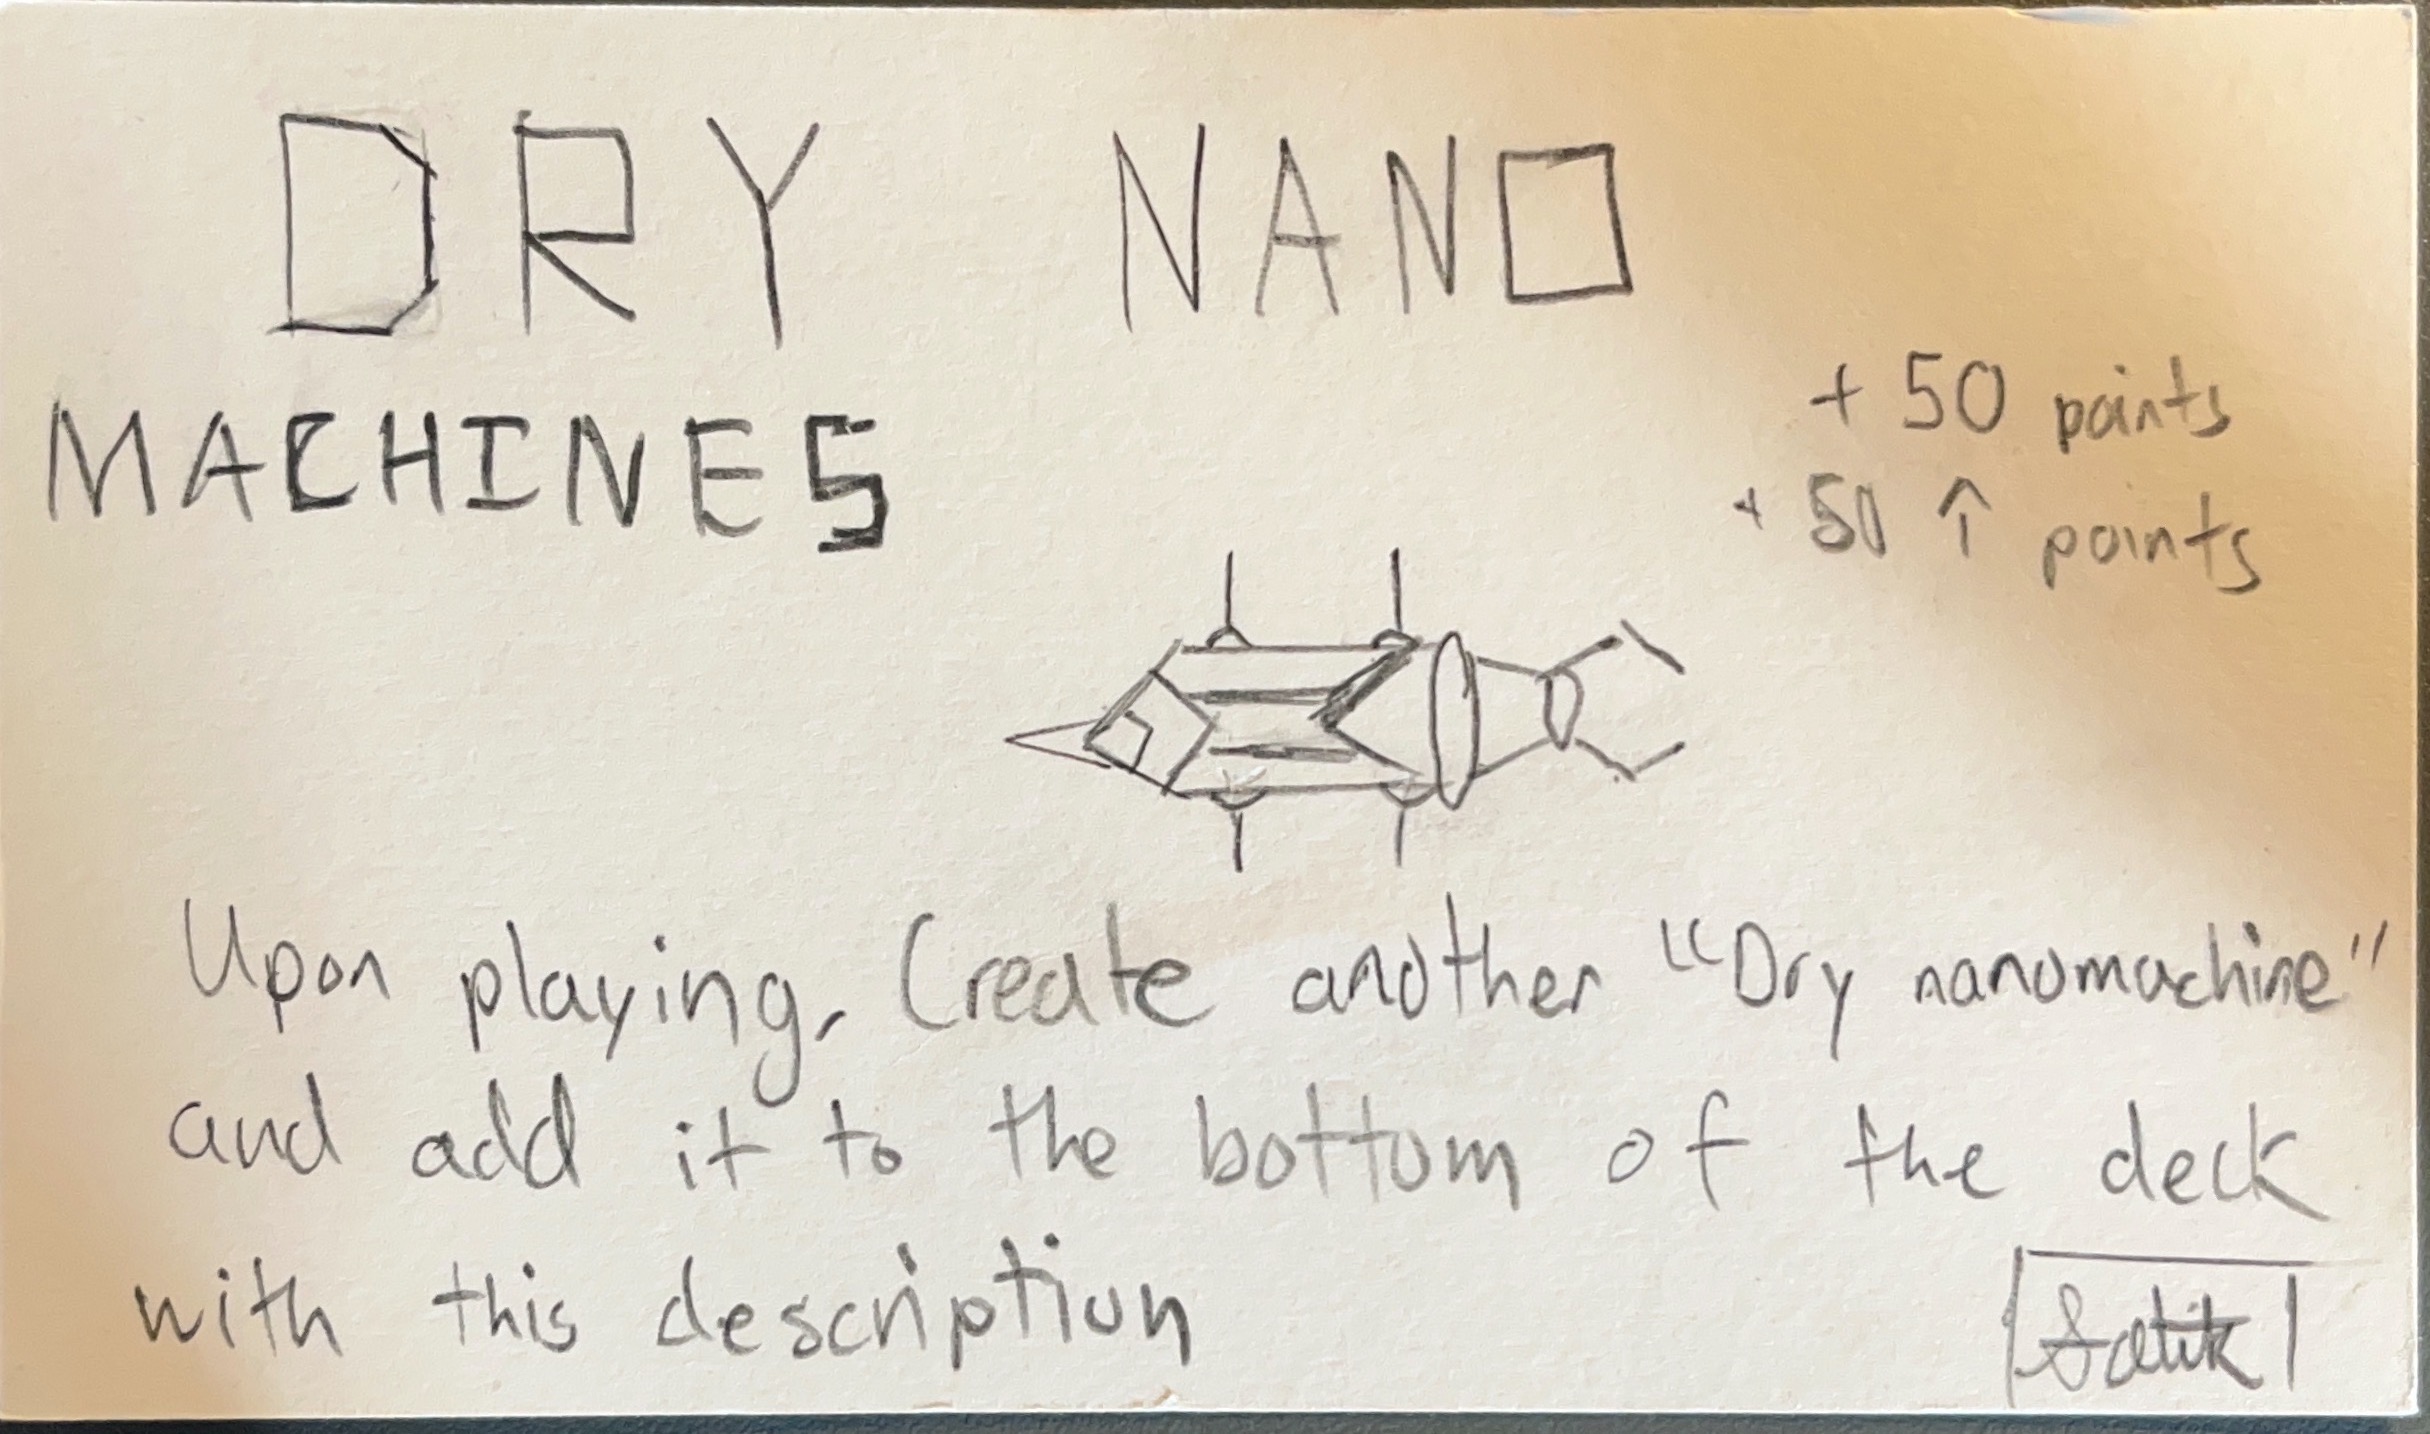 DRY NANO
MACHINES
+ 50 points
+ 50 ↑ points
Upon playing, Create another "Dry nanomachine"
and add it to the bottom of the deck
with this description